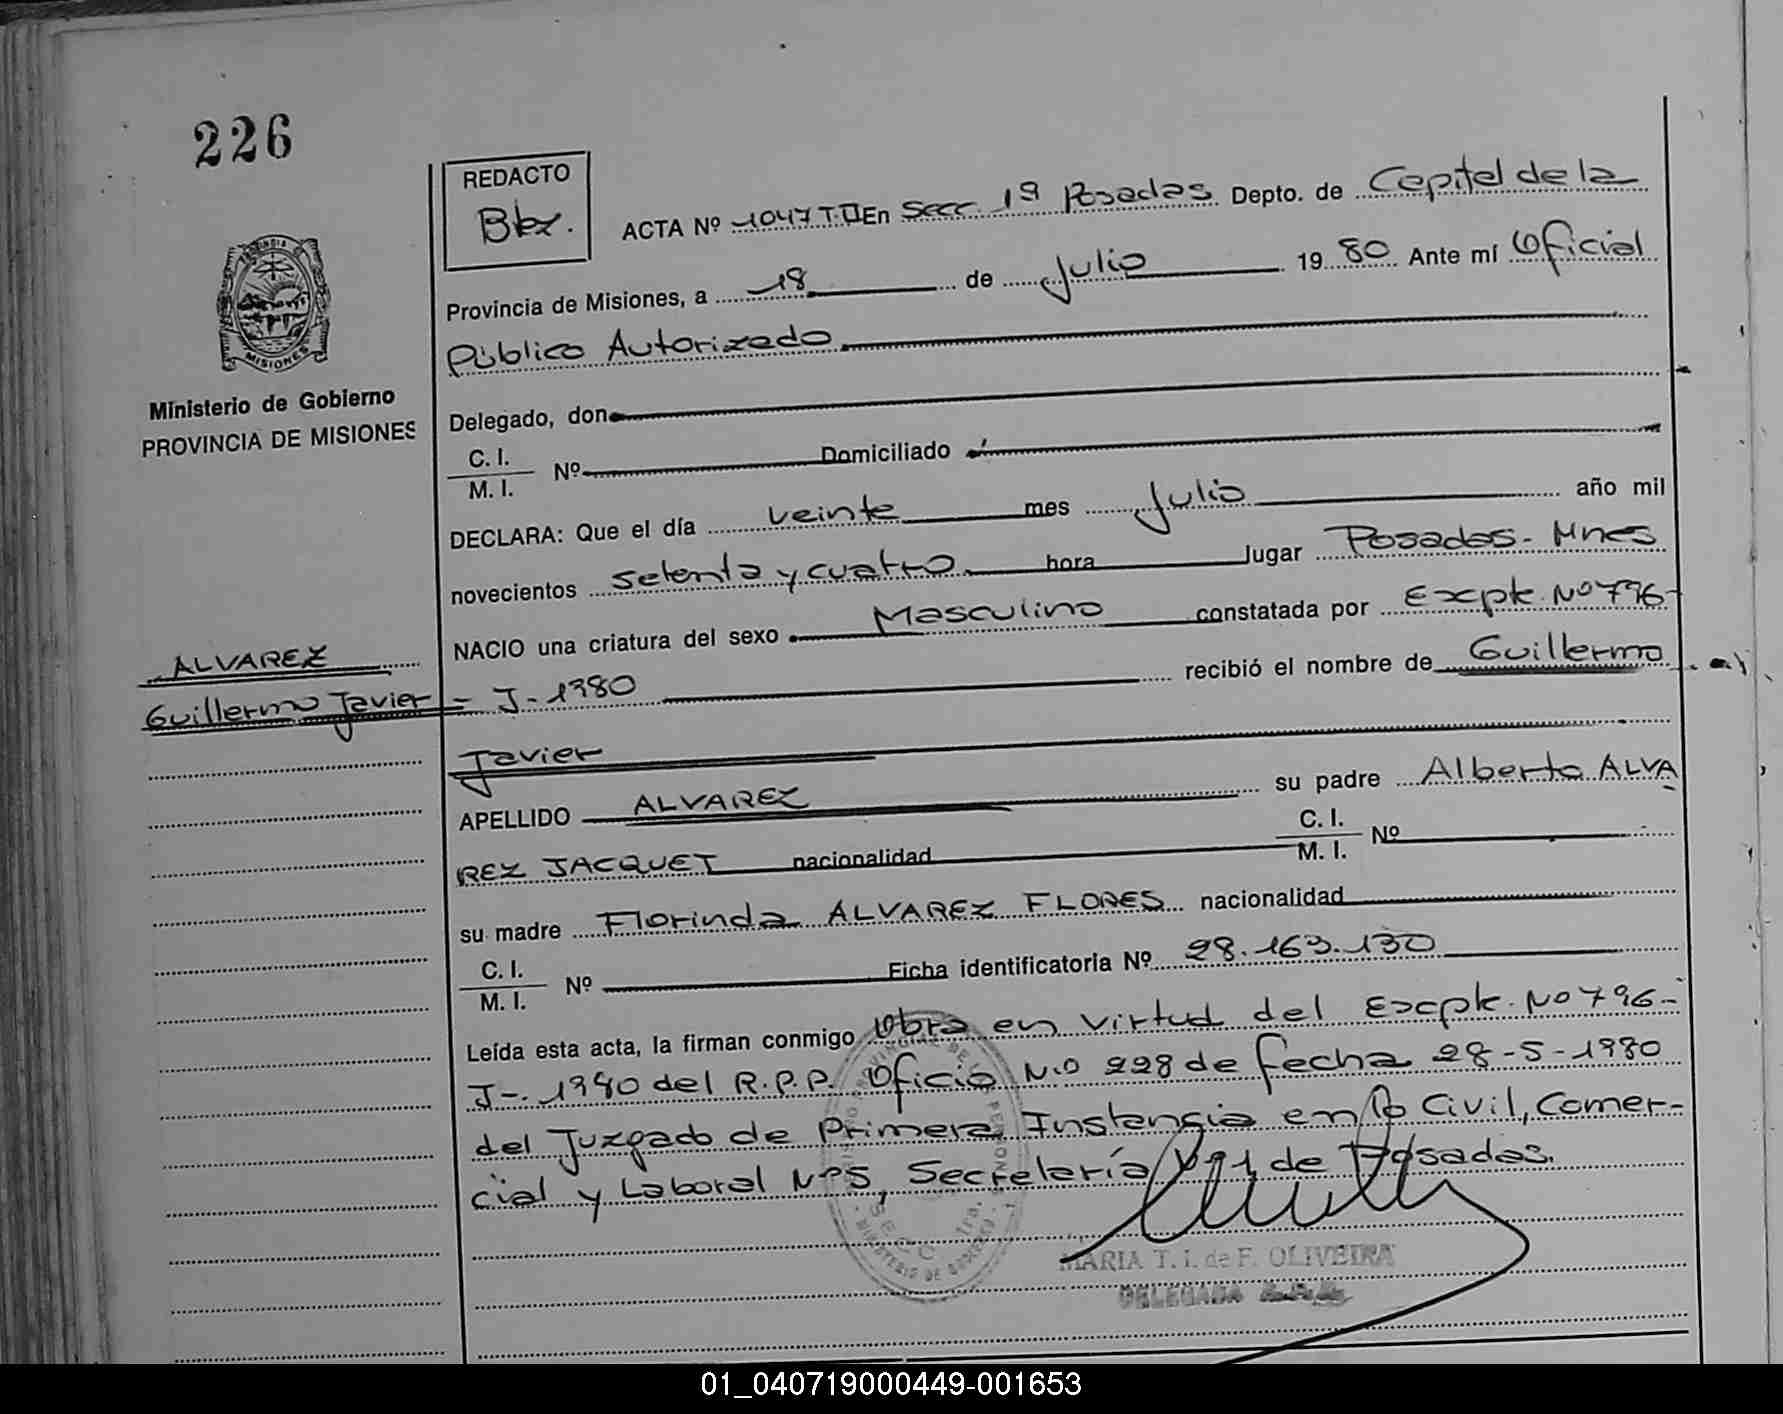 226
REDACTO
Btz.
ACTA Nº 1047 T.II En Secc. 1ª Posadas Depto. de Capital de la
Provincia de Misiones, a 18 de Julio 1980 Ante mí Oficial
Público Autorizado
Delegado, don
C. I.
M. I.
Nº Domiciliado
DECLARA: Que el día veinte mes Julio año mil
novecientos setenta y cuatro hora lugar Posadas. Mnes
NACIO una criatura del sexo Masculino constatada por Expte. Nº 796-
J-1980 recibió el nombre de Guillermo
Javier
APELLIDO ALVAREZ su padre Alberto ALVA
REZ JACQUET nacionalidad C. I. M. I. Nº
su madre Florinda ALVAREZ FLORES nacionalidad
C. I.
M. I.
Nº Ficha identificatoria Nº 28.163.130
Leída esta acta, la firman conmigo Obra en virtud del Expte. Nº 796-
J-. 1980 del R.P.P. Oficio N.º 228 de fecha 28-5-1980
del Juzgado de Primera Instancia en lo Civil, Comer-
cial y Laboral Nº5, Secretaría Nº1 de Posadas.
MARIA T. I. de F. OLIVEIRA
DELEGADA
MISIONES
Ministerio de Gobierno
PROVINCIA DE MISIONES
ALVAREZ
Guillermo Javier
01_040719000449-001653